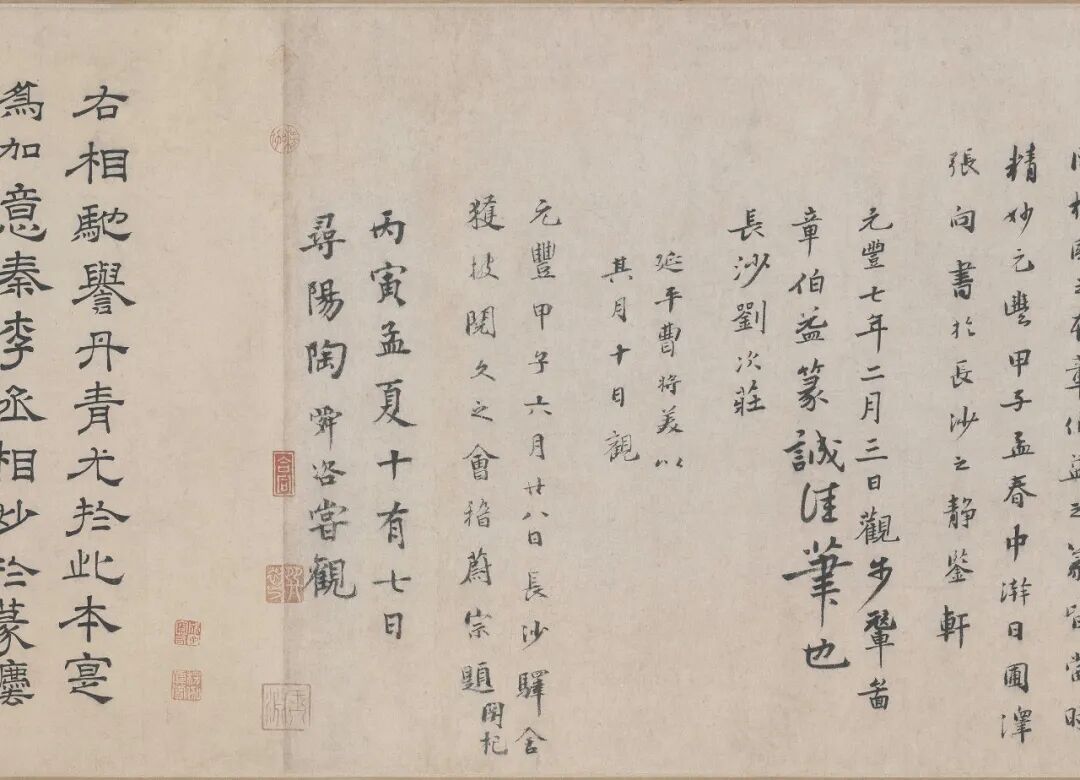 相國之本章伯益之篆皆當時
精妙元豐甲子孟春中澣日圃澤
張向書於長沙之靜鑒軒
元豐七年二月三日觀步輦啚
章伯益篆誠佳筆也
長沙劉次莊
延平曹將美以
其月十日觀
元豐甲子六月廿八日長沙驛舍
獲披閱久之會稽蔚宗題
関杞
丙寅孟夏十有七日
尋陽陶舜咨嘗觀
合同
右相馳譽丹青尤於此本寔
為加意秦李丞相妙於篆